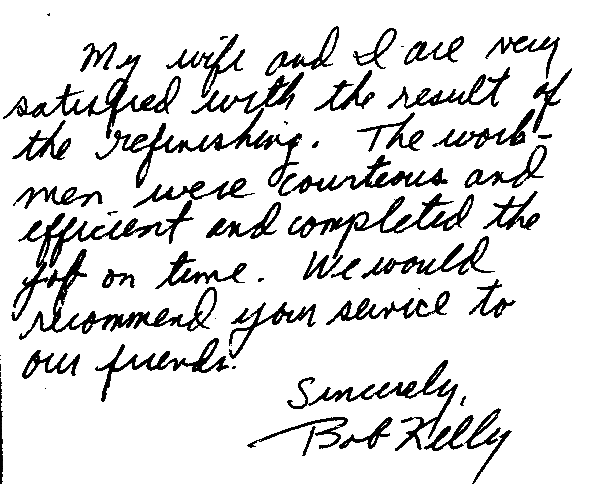 My wife and I are very
satisfied with the result of
the refinishing. The work-
men were courteous and
efficient and completed the
job on time. We would
recommend your service to
our friends.
Sincerely,
Bob Kelly